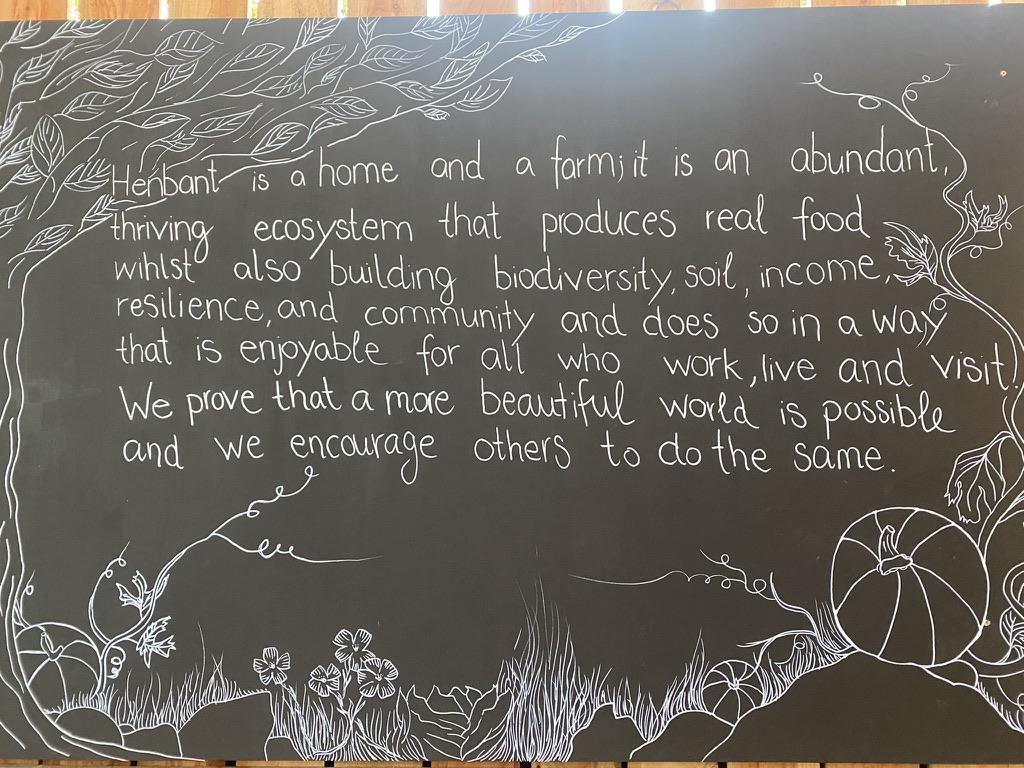 Henbant is a home and a farm; it is an abundant,
thriving ecosystem that produces real food
wihlst also building biodiversity, soil, income,
resilience, and community and does so in a way
that is enjoyable for all who work, live and visit.
We prove that a more beautiful world is possible
and we encourage others to do the same.